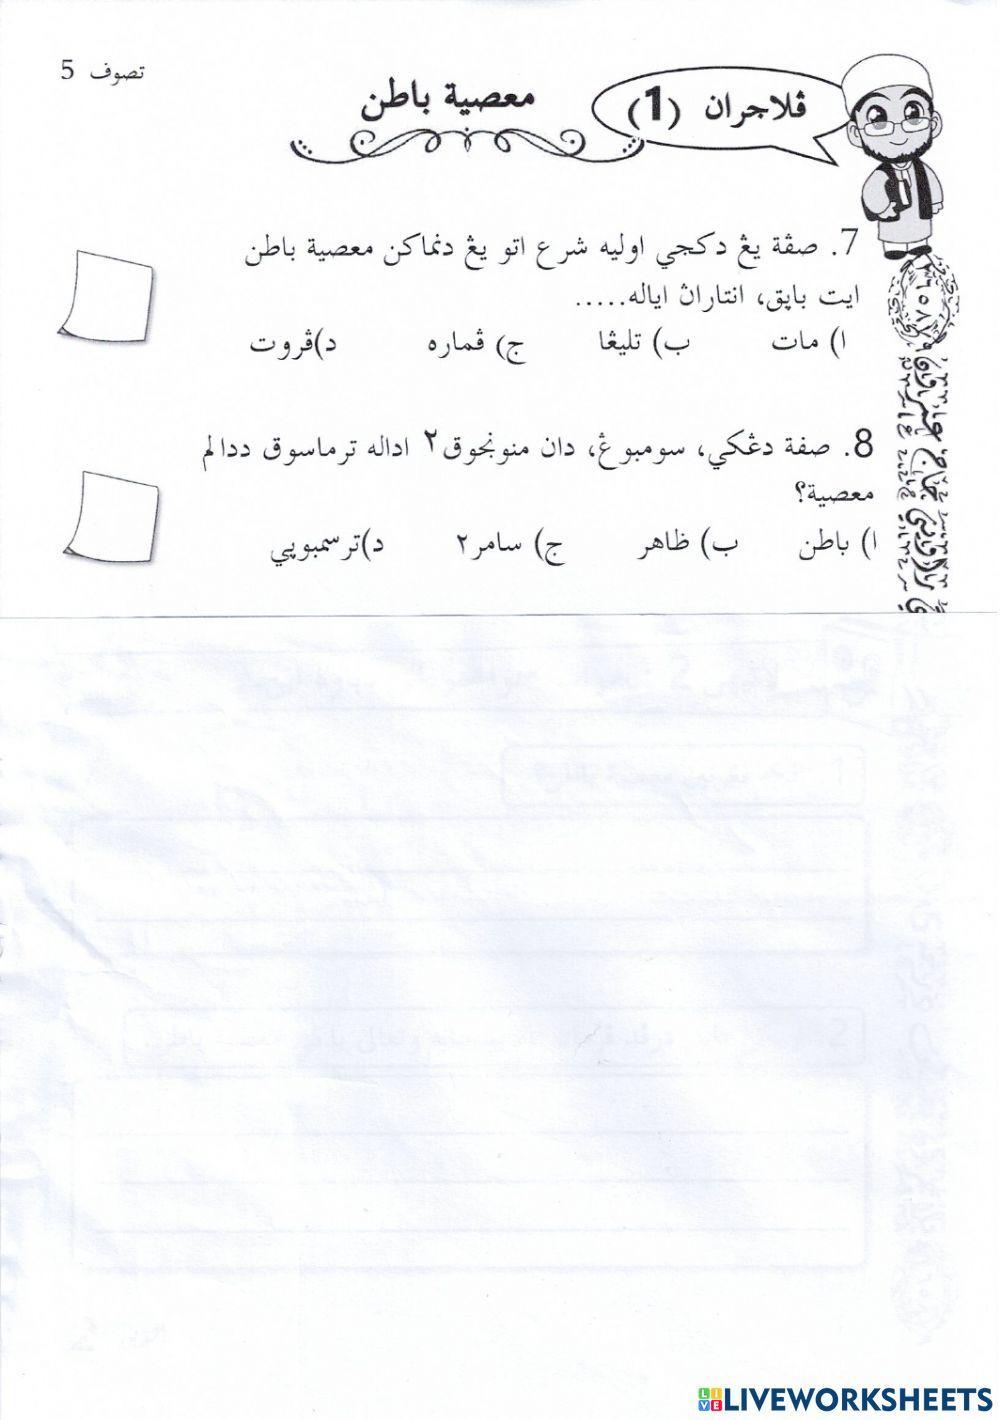 تصوف 5
ڤلاجران (1)
معصية باطن
7. صفة يڠ دكجي اوليه شرع اتو يڠ دنماكن معصية باطن
ايت باپق، انتاراڽ اياله.....
ا) مات ب) تليڠا ج) ڤماره د)ڤروت
8. صفة دڠكي، سومبوڠ، دان منونجوق٢ اداله ترماسوق ددالم
معصية؟
ا) باطن ب) ظاهر ج) سامر٢ د)ترسمبوپي
LIVEWORKSHEETS